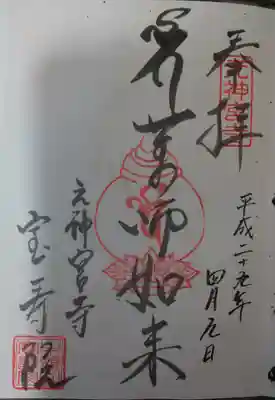 奉拝
元神宮寺
平成二十九年
四月九日
薬師如来
元神宮寺
宝寿院